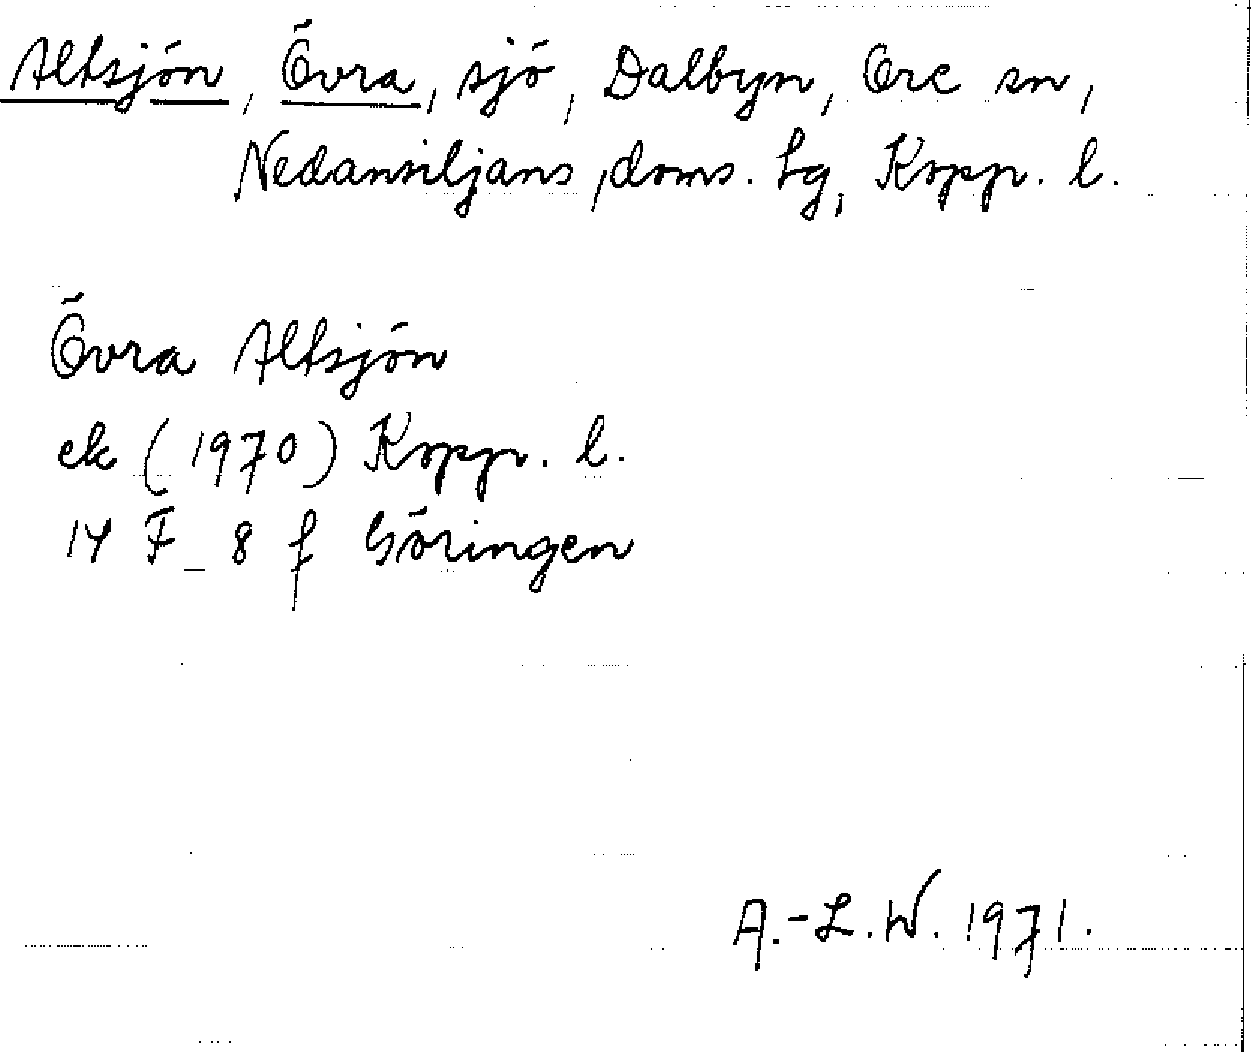 Altsjön, Övra, sjö, Dalbyn, Ore sn,
Nedansiljans, doms. lg, Kopp. l.
Övra Altsjön
ek (1970) Kopp. l.
14 F_ 8 f Göringen
A.-L.W. 1971.